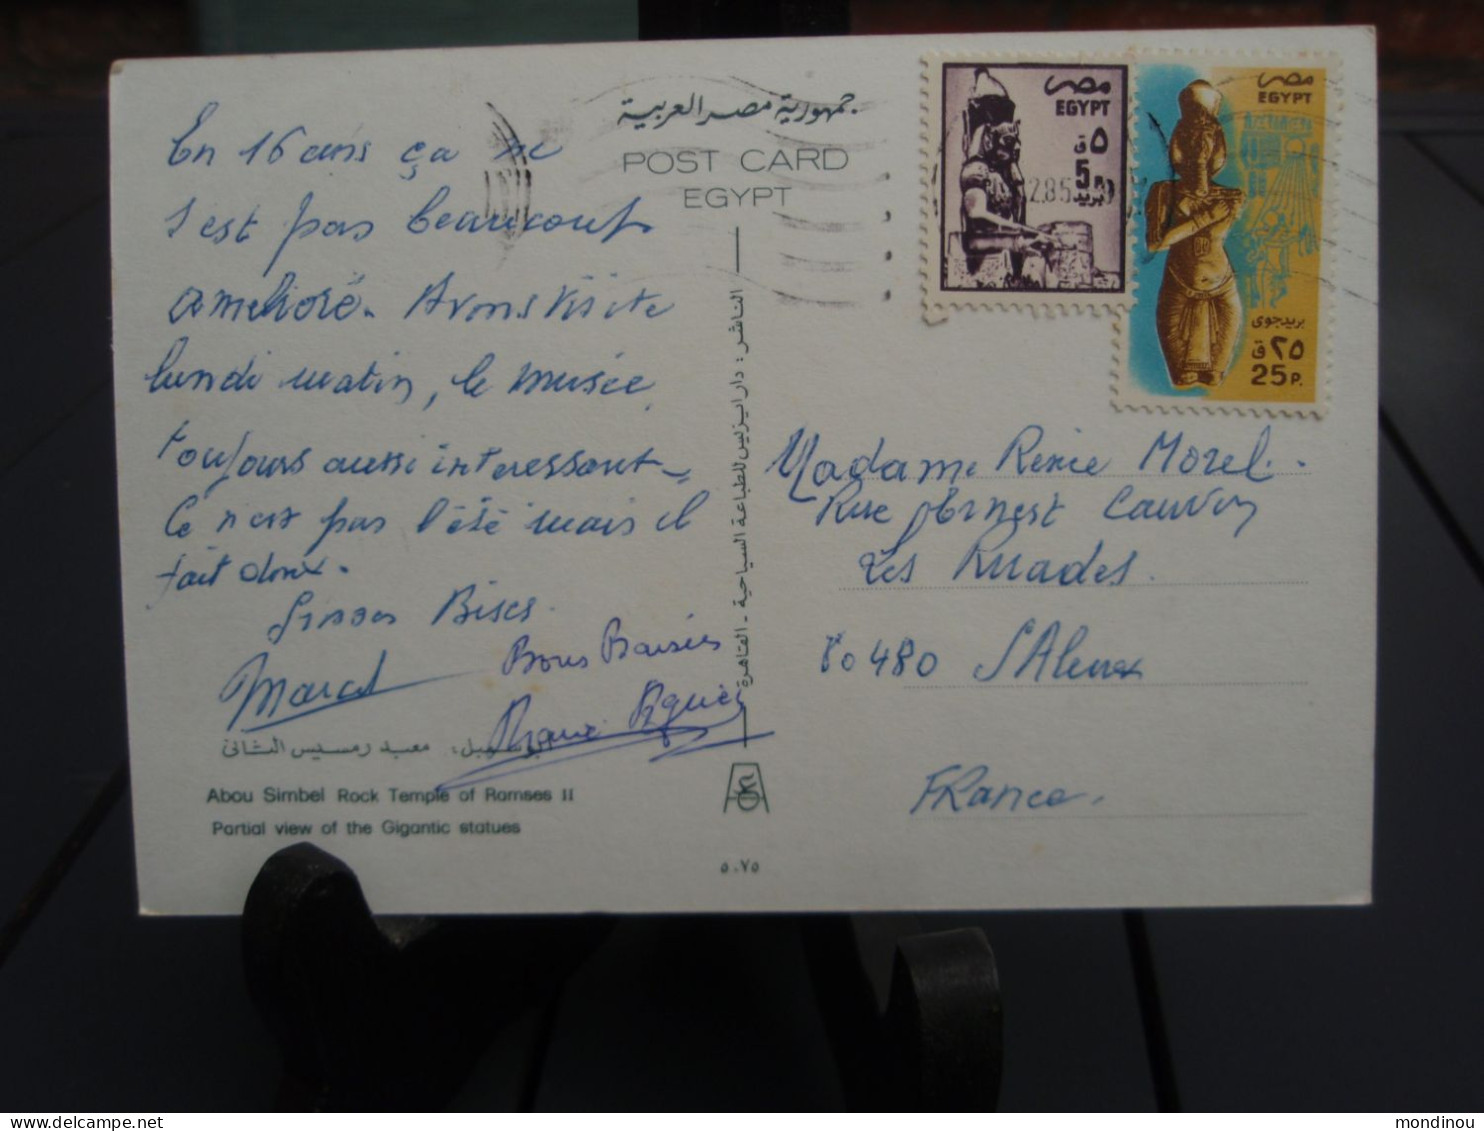 En 16 ans ça ne
s'est pas beaucoup
amélioré. Avons visité
lundi matin, le musée
toujours aussi intéressant.
Ce n'est pas l'été mais il
fait doux.
Grosses Bises.
Marcel
Bons Baisers
ابو سمبل: معبد رمسيس الثانى
Abou Simbel Rock Temple of Ramses II
Partial view of the Gigantic statues
جمهورية مصر العربية
POST CARD
EGYPT
الناشر: دار ايزيس للطباعة السياحية - القاهرة
٥٠٧٥
مصر
EGYPT
٥ ق
5 P.
بريد
مصر
EGYPT
بريد جوى
٢٥ ق
25 P.
Madame Renée Morel.
Rue Ernest Cauvin
Les
80480 Saleux
FRance.
mondinou